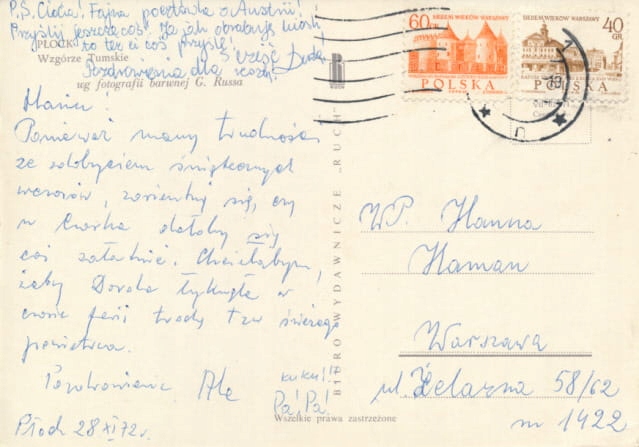 P.S. Ciocia! Fajna pocztówka o Austrii!
Przyślij jeszcze coś! Ja jak
to też ci coś przyślę!
Cześć
Pozdrowienia dla
PŁOCK
Wzgórze Tumskie
wg fotografii barwnej G. Russa
Haniu!
Ponieważ mamy trudności
ze zdobyciem świątecznych
zorientuj się, czy
w dałoby się
coś załatwić. Chciałabym,
żeby Dorota łyknęła w
czasie ferii trochę tzw świeżego
powietrza.
Pozdrowienia Ala
kuku!!
Pa! Pa!
Płock 28 XI 72r.
BIURO WYDAWNICZE „RUCH"
RUCH
Wszelkie prawa zastrzeżone
60 GR
SIEDEM WIEKÓW WARSZAWY
POLSKA
SIEDEM WIEKÓW WARSZAWY
40 GR
POLSKA
WP. Hanna
Haman
Warszawa
ul. Żelazna 58/62
m 1422